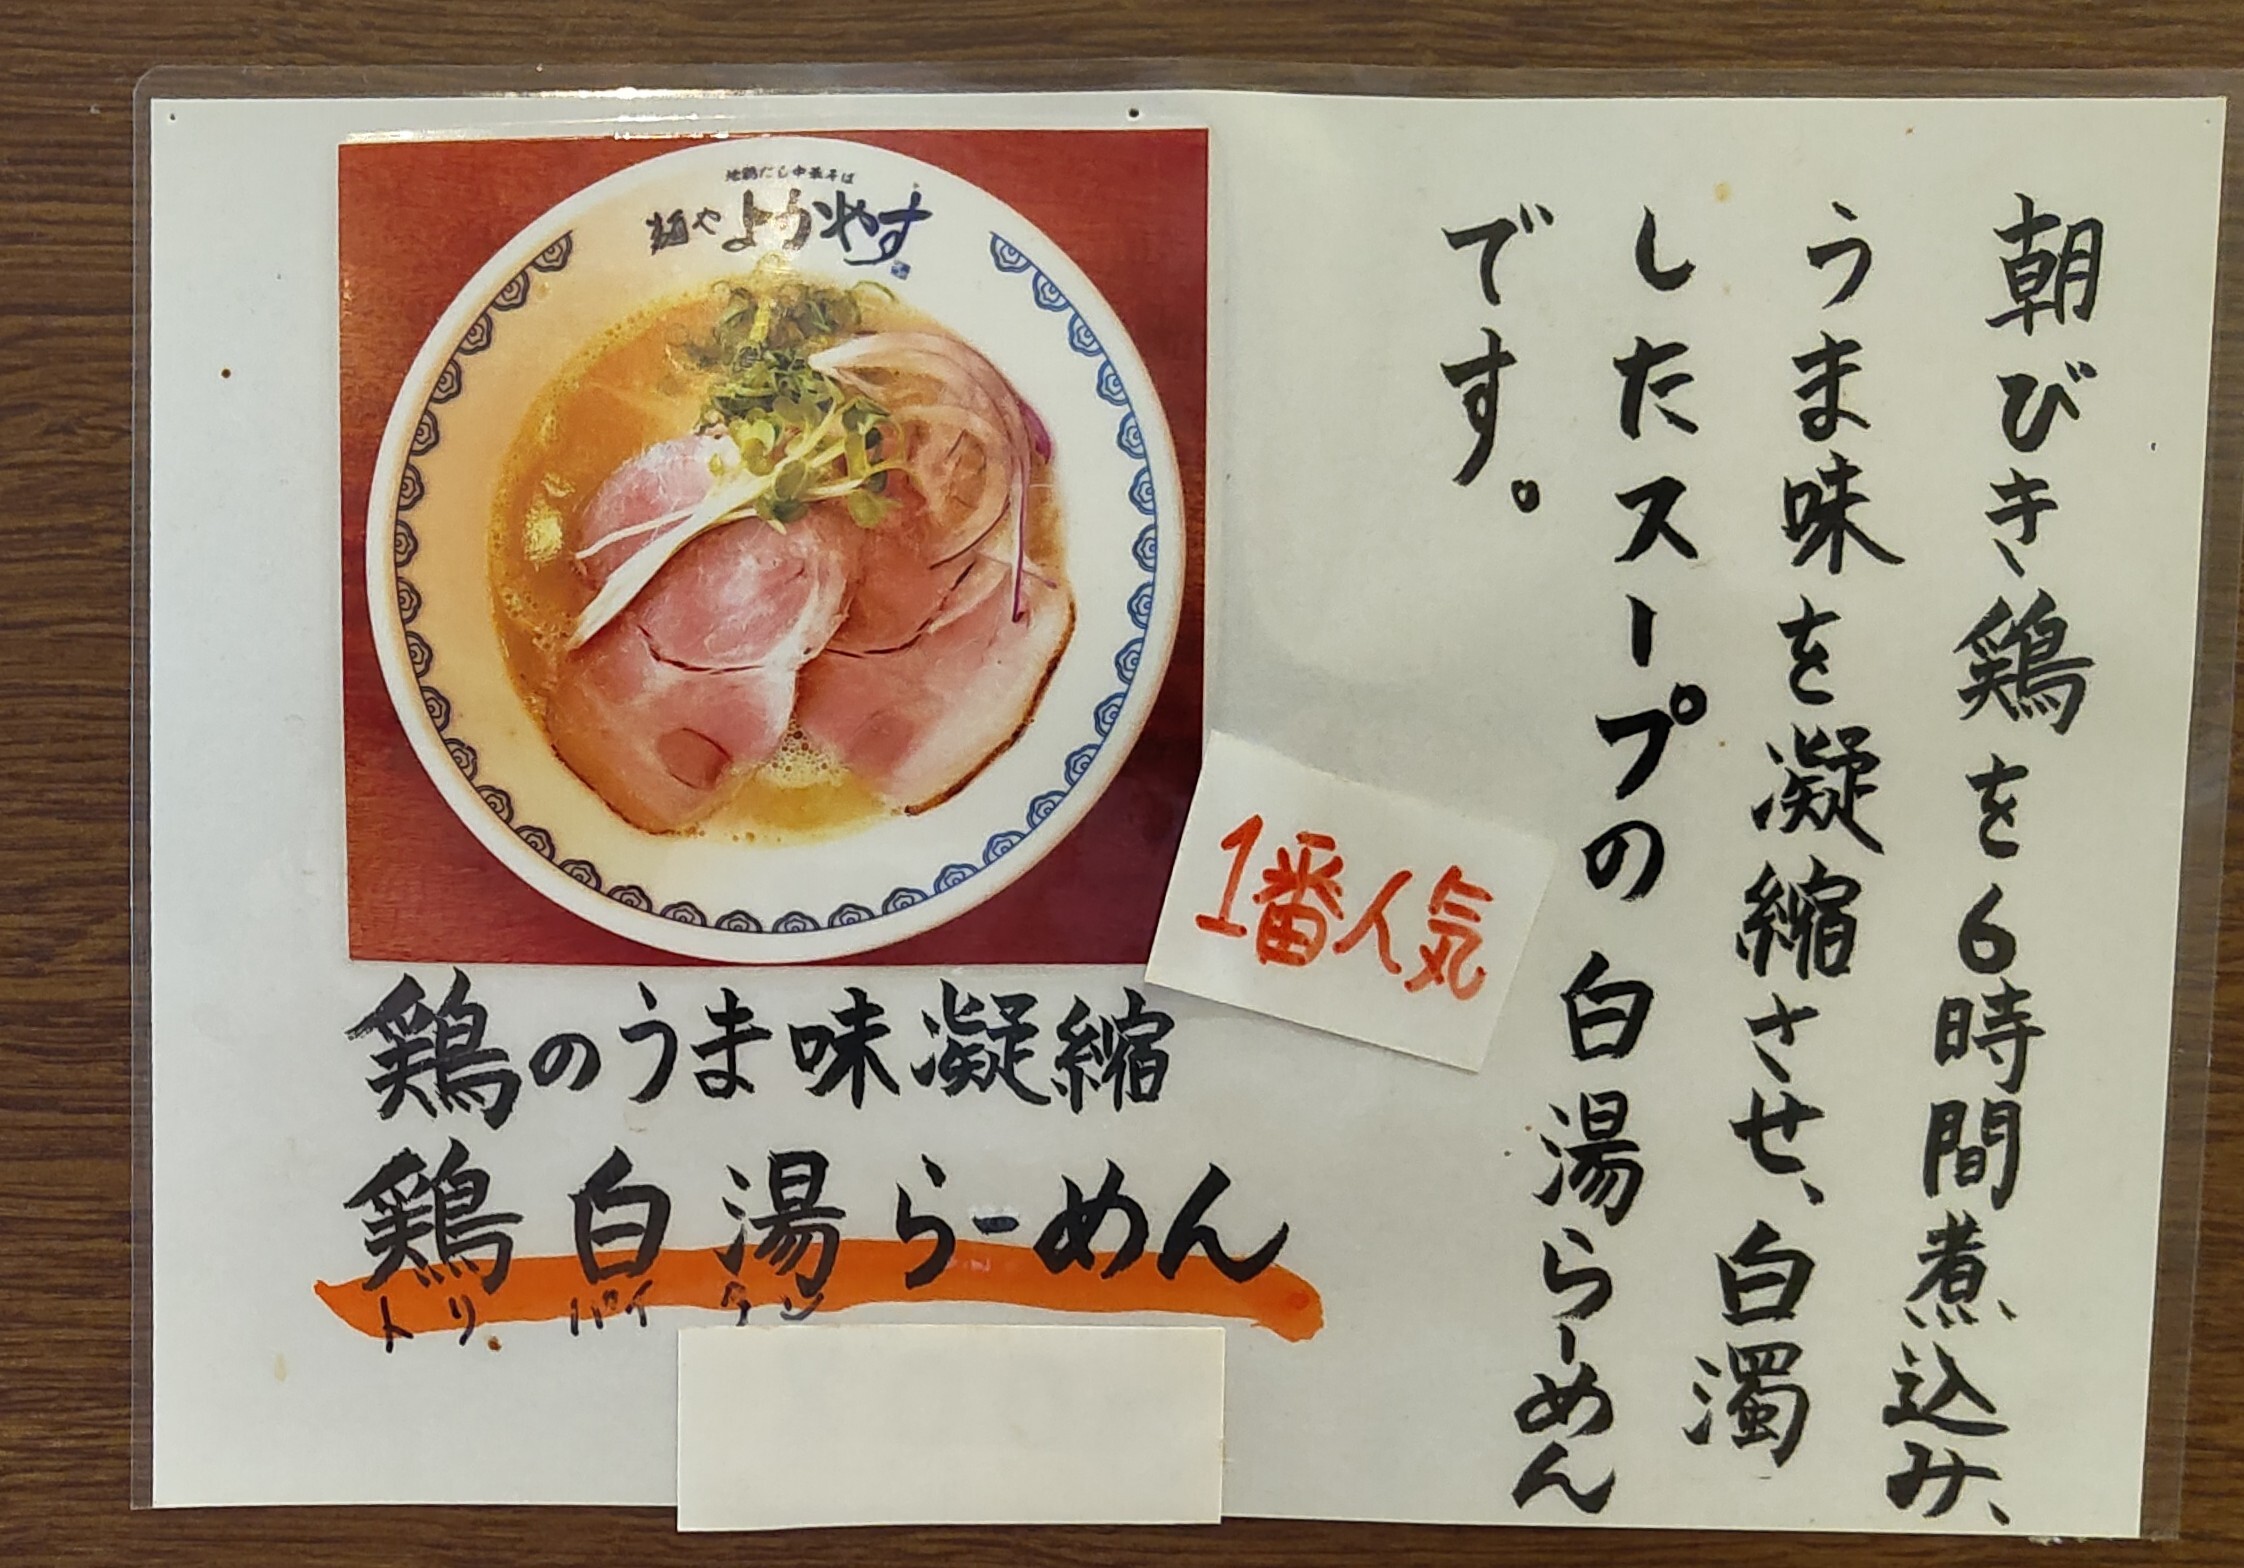 地鶏だし中華そば
麺や ようやす
1番人気
鶏のうま味凝縮
鶏白湯らーめん
トリ パイタン
朝びき鶏を6時間煮込み、
うま味を凝縮させ、白濁
したスープの白湯らーめん
です。